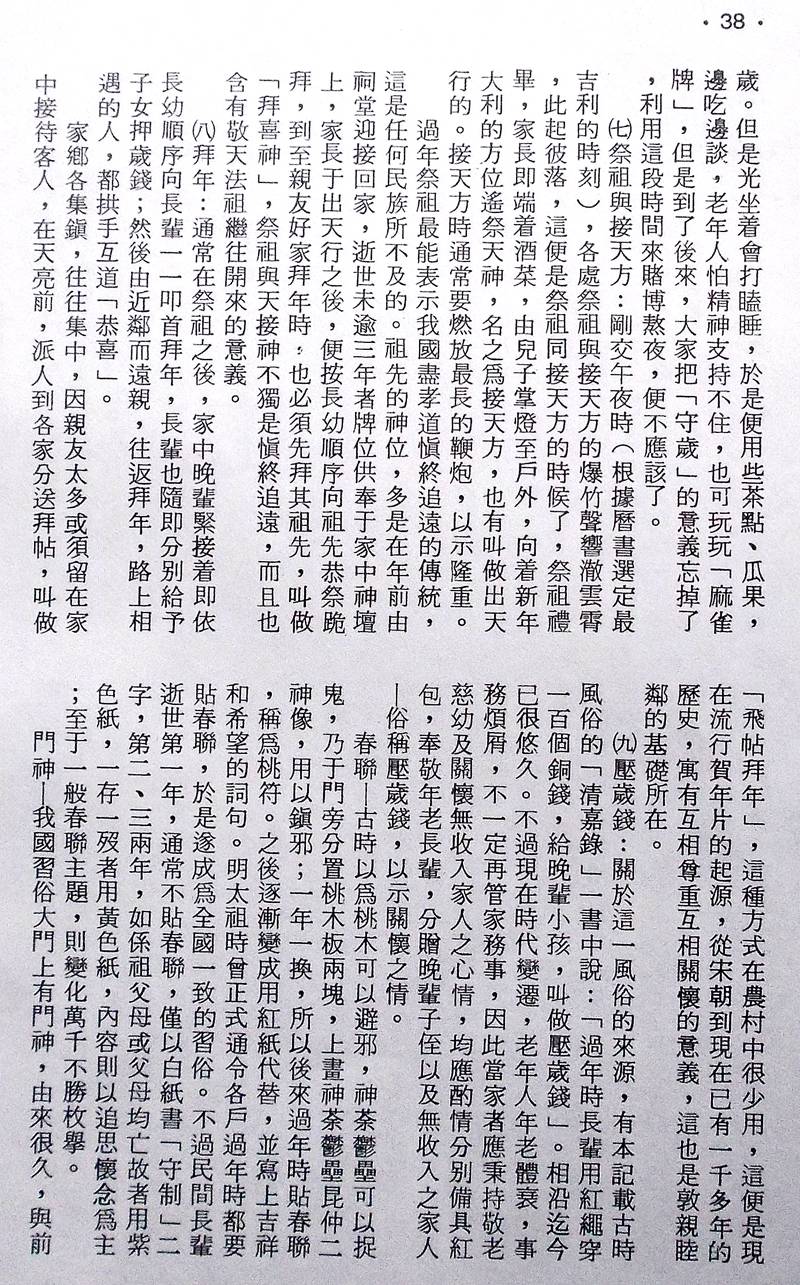 • 38 •
歲。但是光坐着會打瞌睡，於是便用些茶點、瓜果，
邊吃邊談，老年人怕精神支持不住，也可玩玩「麻雀
牌」，但是到了後來，大家把「守歲」的意義忘掉了
，利用這段時間來賭博熬夜，便不應該了。
㈦祭祖與接天方：剛交午夜時（根據曆書選定最
吉利的時刻），各處祭祖與接天方的爆竹聲響澈雲霄
，此起彼落，這便是祭祖同接天方的時候了，祭祖禮
畢，家長即端着酒菜，由兒子掌燈至戶外，向着新年
大利的方位遙祭天神，名之爲接天方，也有叫做出天
行的。接天方時通常要燃放最長的鞭炮，以示隆重。
過年祭祖最能表示我國盡孝道愼終追遠的傳統，
這是任何民族所不及的。祖先的神位，多是在年前由
祠堂迎接回家，逝世未逾三年者牌位供奉于家中神壇
上，家長于出天行之後，便按長幼順序向祖先恭祭跪
拜，到至親友好家拜年時，也必須先拜其祖先，叫做
「拜喜神」，祭祖與天接神不獨是愼終追遠，而且也
含有敬天法祖繼往開來的意義。
㈧拜年：通常在祭祖之後，家中晚輩緊接着即依
長幼順序向長輩一一叩首拜年，長輩也隨即分別給予
子女押歲錢；然後由近鄰而遠親，往返拜年，路上相
遇的人，都拱手互道「恭喜」。
家鄉各集鎭，往往集中，因親友太多或須留在家
中接待客人，在天亮前，派人到各家分送拜帖，叫做
「飛帖拜年」，這種方式在農村中很少用，這便是現
在流行賀年片的起源，從宋朝到現在已有一千多年的
歷史，寓有互相尊重互相關懷的意義，這也是敦親睦
鄰的基礎所在。
㈨壓歲錢：關於這一風俗的來源，有本記載古時
風俗的「清嘉錄」一書中說：「過年時長輩用紅繩穿
一百個銅錢，給晚輩小孩，叫做壓歲錢」。相沿迄今
已很悠久。不過現在時代變遷，老年人年老體衰，事
務煩屑，不一定再管家務事，因此當家者應秉持敬老
慈幼及關懷無收入家人之心情，均應酌情分別備具紅
包，奉敬年老長輩，分贈晚輩子侄以及無收入之家人
—俗稱壓歲錢，以示關懷之情。
春聯—古時以爲桃木可以避邪，神荼鬱壘可以捉
鬼，乃于門旁分置桃木板兩塊，上畫神荼鬱壘昆仲二
神像，用以鎭邪；一年一換，所以後來過年時貼春聯
，稱爲桃符。之後逐漸變成用紅紙代替，並寫上吉祥
和希望的詞句。明太祖時曾正式通令各戶過年時都要
貼春聯，於是遂成爲全國一致的習俗。不過民間長輩
逝世第一年，通常不貼春聯，僅以白紙書「守制」二
字，第二、三兩年，如係祖父母或父母均亡故者用紫
色紙，一存一歿者用黃色紙，內容則以追思懷念爲主
；至于一般春聯主題，則變化萬千不勝枚擧。
門神—我國習俗大門上有門神，由來很久，與前